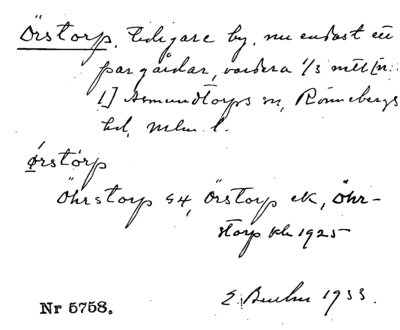 Örstorp, tidigare by, nu endast ett
par gårdar, vardera 1/3 mtl [nr
1] Asmundtorps sn, Rönnebergs
hd, Mlm. l.
Örstorp
Öhrstorp G4, Örstorp ek, Öhr-
storp kb 1925
E. 1933.
Nr 5758.